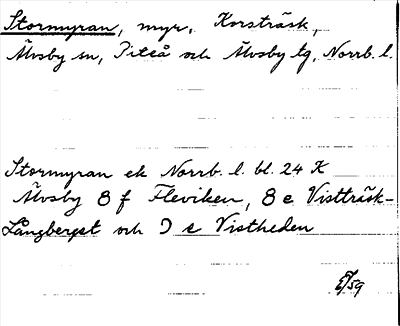 Stormyran, myr, Korsträsk,
Älvsby sn, Piteå och Älvsby tg, Norrb. l.
Stormyran ek Norrb. l. bl. 24 K
Älvsby 8 f Fleviken, 8 e Vistträsk-
Långberget och 9 e Vistheden
/59